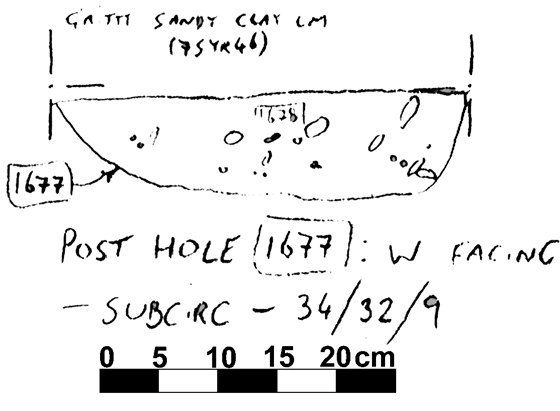 GRITTY SANDY CLAY LM
(75YR46)
1678
1677
POST HOLE [1677]: W FACING
- SUBCIRC - 34/32/9
0 5 10 15 20 cm